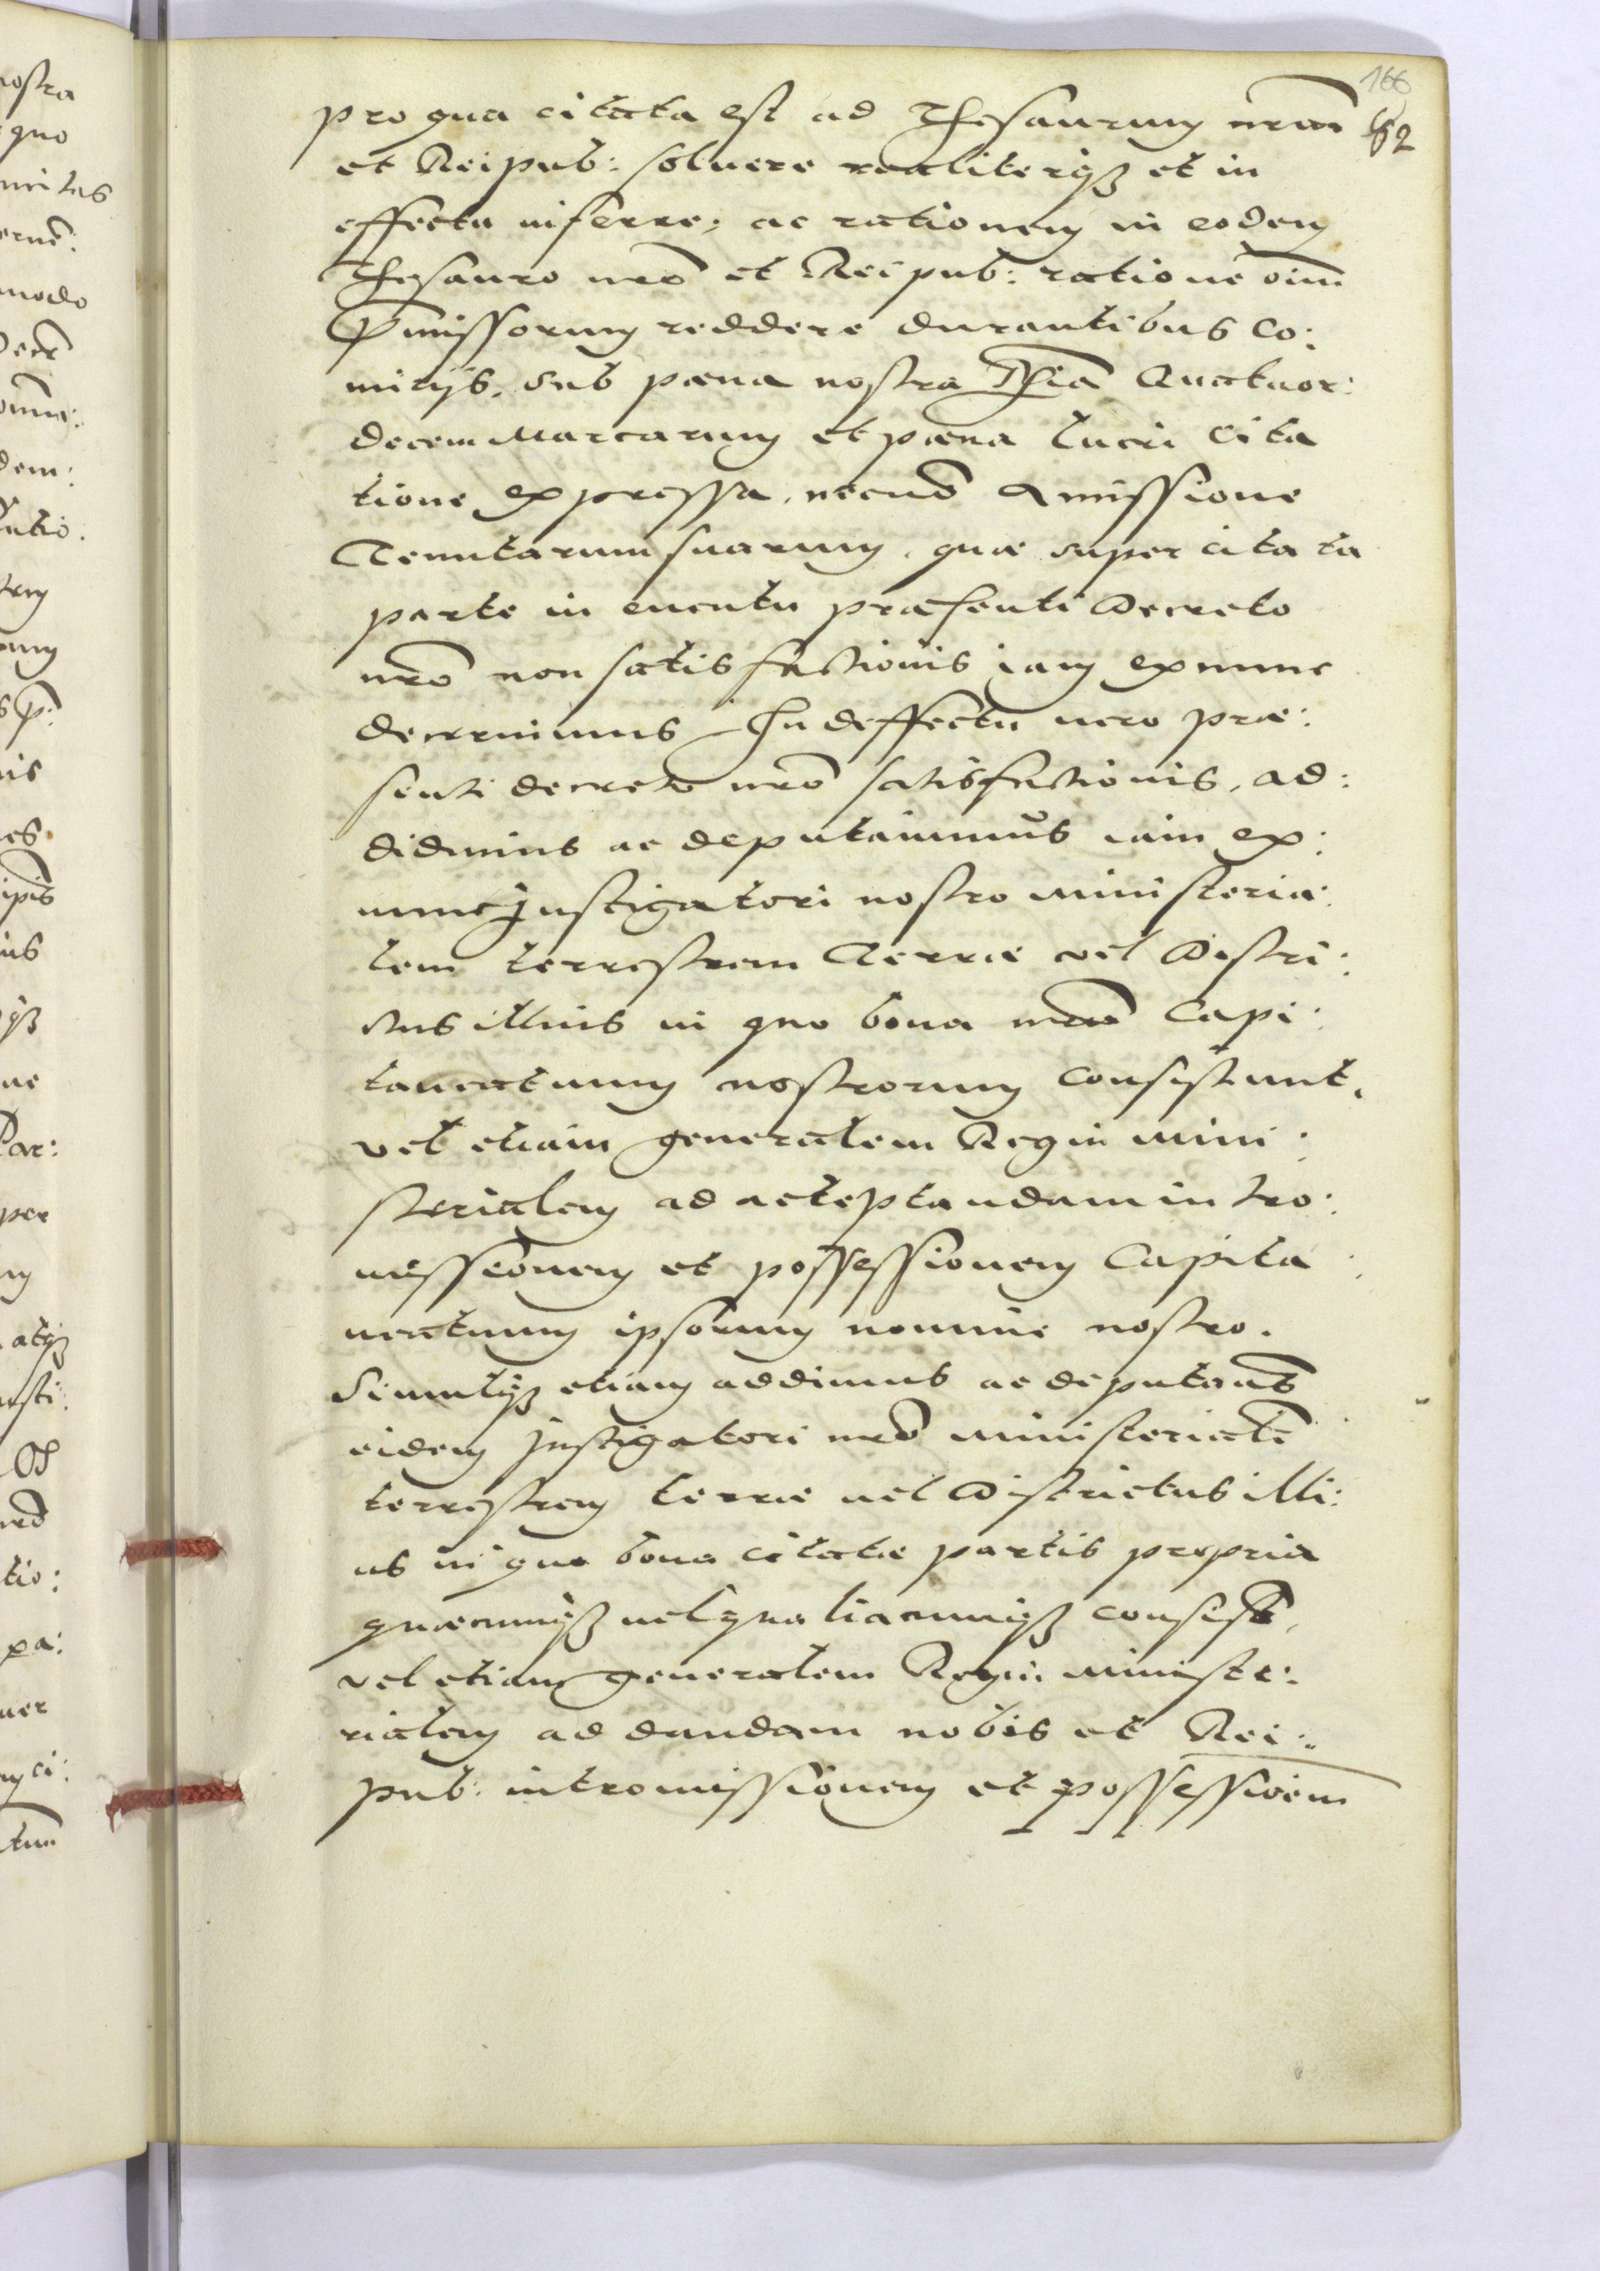 166
62
pro qua citata est ad Thesaurum nrum
et Reipub: soluere realiterqȝ et in
effectu inferre, ac rationem in eodem
Thesauro nro et Reipub: ratione oim
Pmissorum reddere durantibus Co:
mitijs, sub pœna nostra Quatuor:
decem Marcarum et pœna lucri Cita
tione expressa, necnõ Amissione
Tenutarum suarum, quæ super citata
parte in euentu præsenti Decreto
nro non satisfactionis iam ex nunc
decernimus In deffectu uero præ:
senti decreto nro satisfactionis, ad:
didimus ac deputauimus iam ex:
nunc Instigatori nostro Ministeria:
lem terrestrem Terræ vel Distri:
ctus illius in quo bona Capi:
taneatuum nostrorum consistunt,
vel etiam generalem Regni Mini:
sterialem ad acceptandam intro:
missionem et possessionem Capita:
neatuum ipsorum nomine nostro.
Simulqȝ etiam addimus ac deputams
eidem Instigatori nro Ministerialẽ
terrestrem terræ uel Districtus illi:
us in quo bona citatæ partis propria
quæcunqȝ uel qualiacunqȝ consist,
vel etiam generalem Regni Ministe:
rialem ad dandam nobis et Rei:
pub: intromissionem et possessioem
nostra
quo
modo
dem:
Par:
per
atqȝ
pa:
uer
ci: